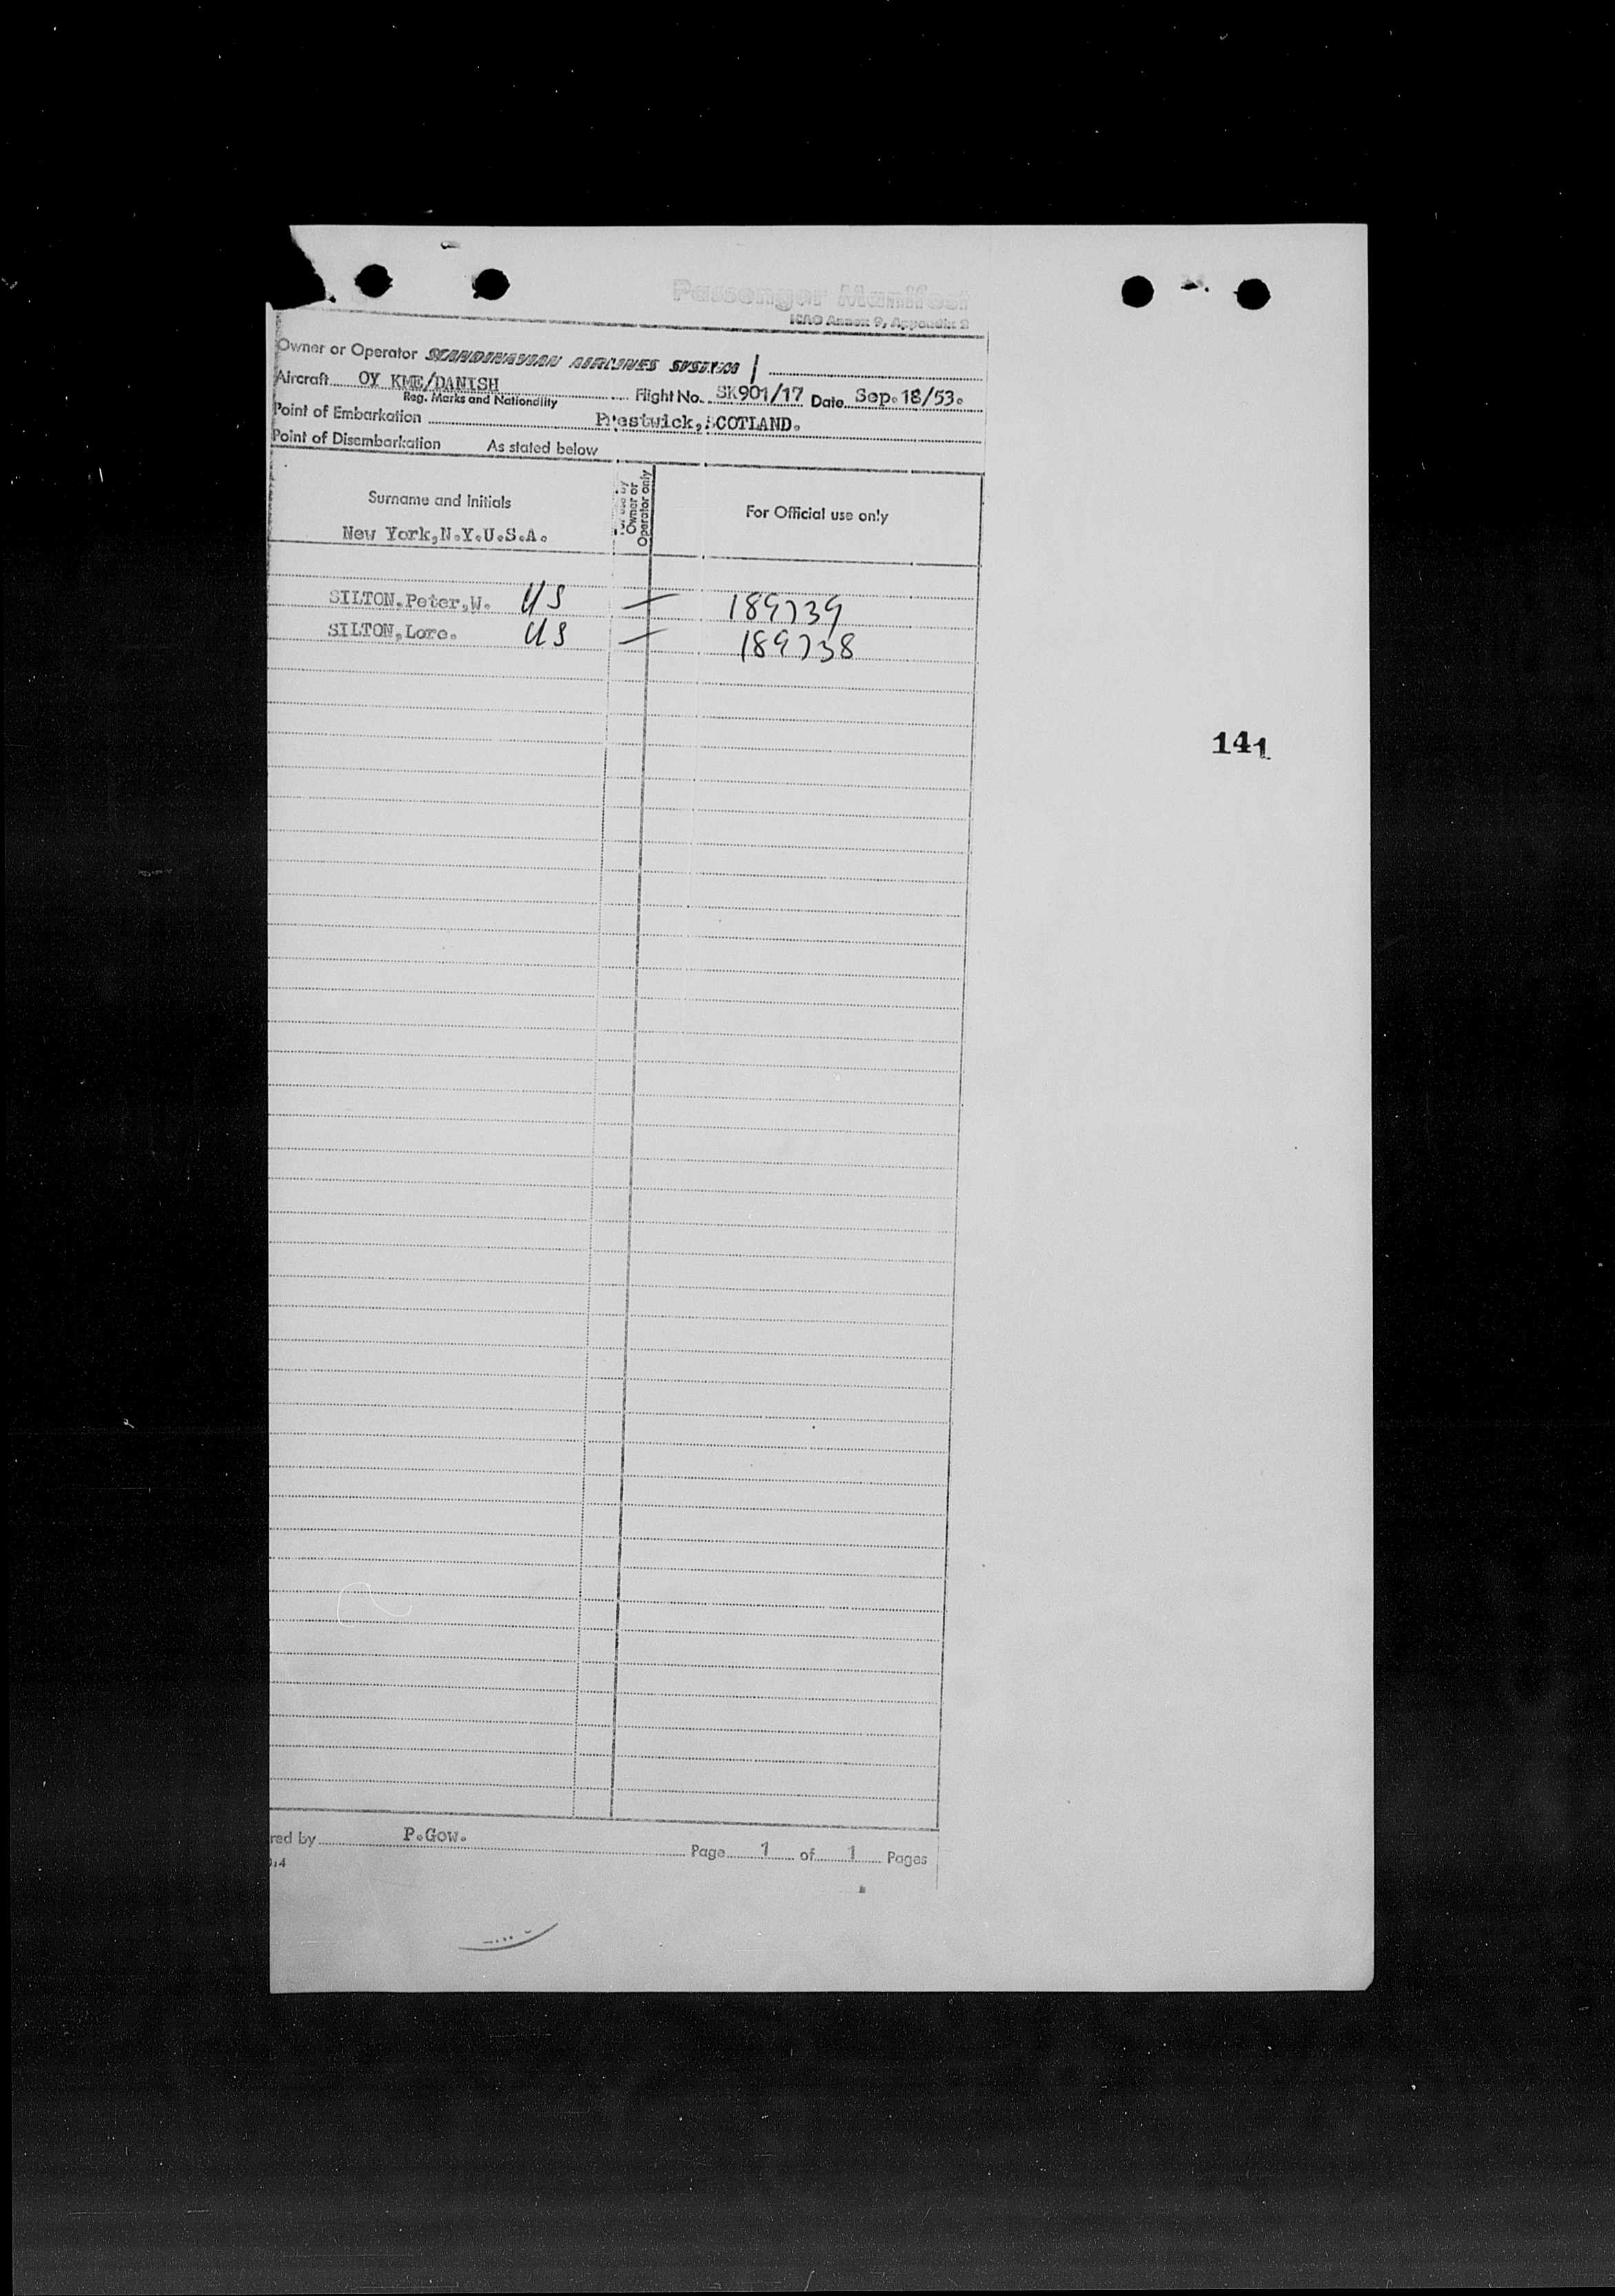 Passenger Manifest
ICAO Annex 9, Appendix 2
Owner or Operator SCANDINAVIAN AIRLINES SYSTEM
Aircraft OY KME/DANISH Flight No. SK901/17 Date Sep.18/53.
Reg. Marks and Nationality
Point of Embarkation Prestwick,SCOTLAND.
Point of Disembarkation As stated below
Surname and Initials
use by Owner or Operator only
For Official use only
New York,N.Y.U.S.A.
SILTON.Peter,W. US 189739
SILTON,Lore. US 189738
141
red by P.Gow. Page 1 of 1 Pages